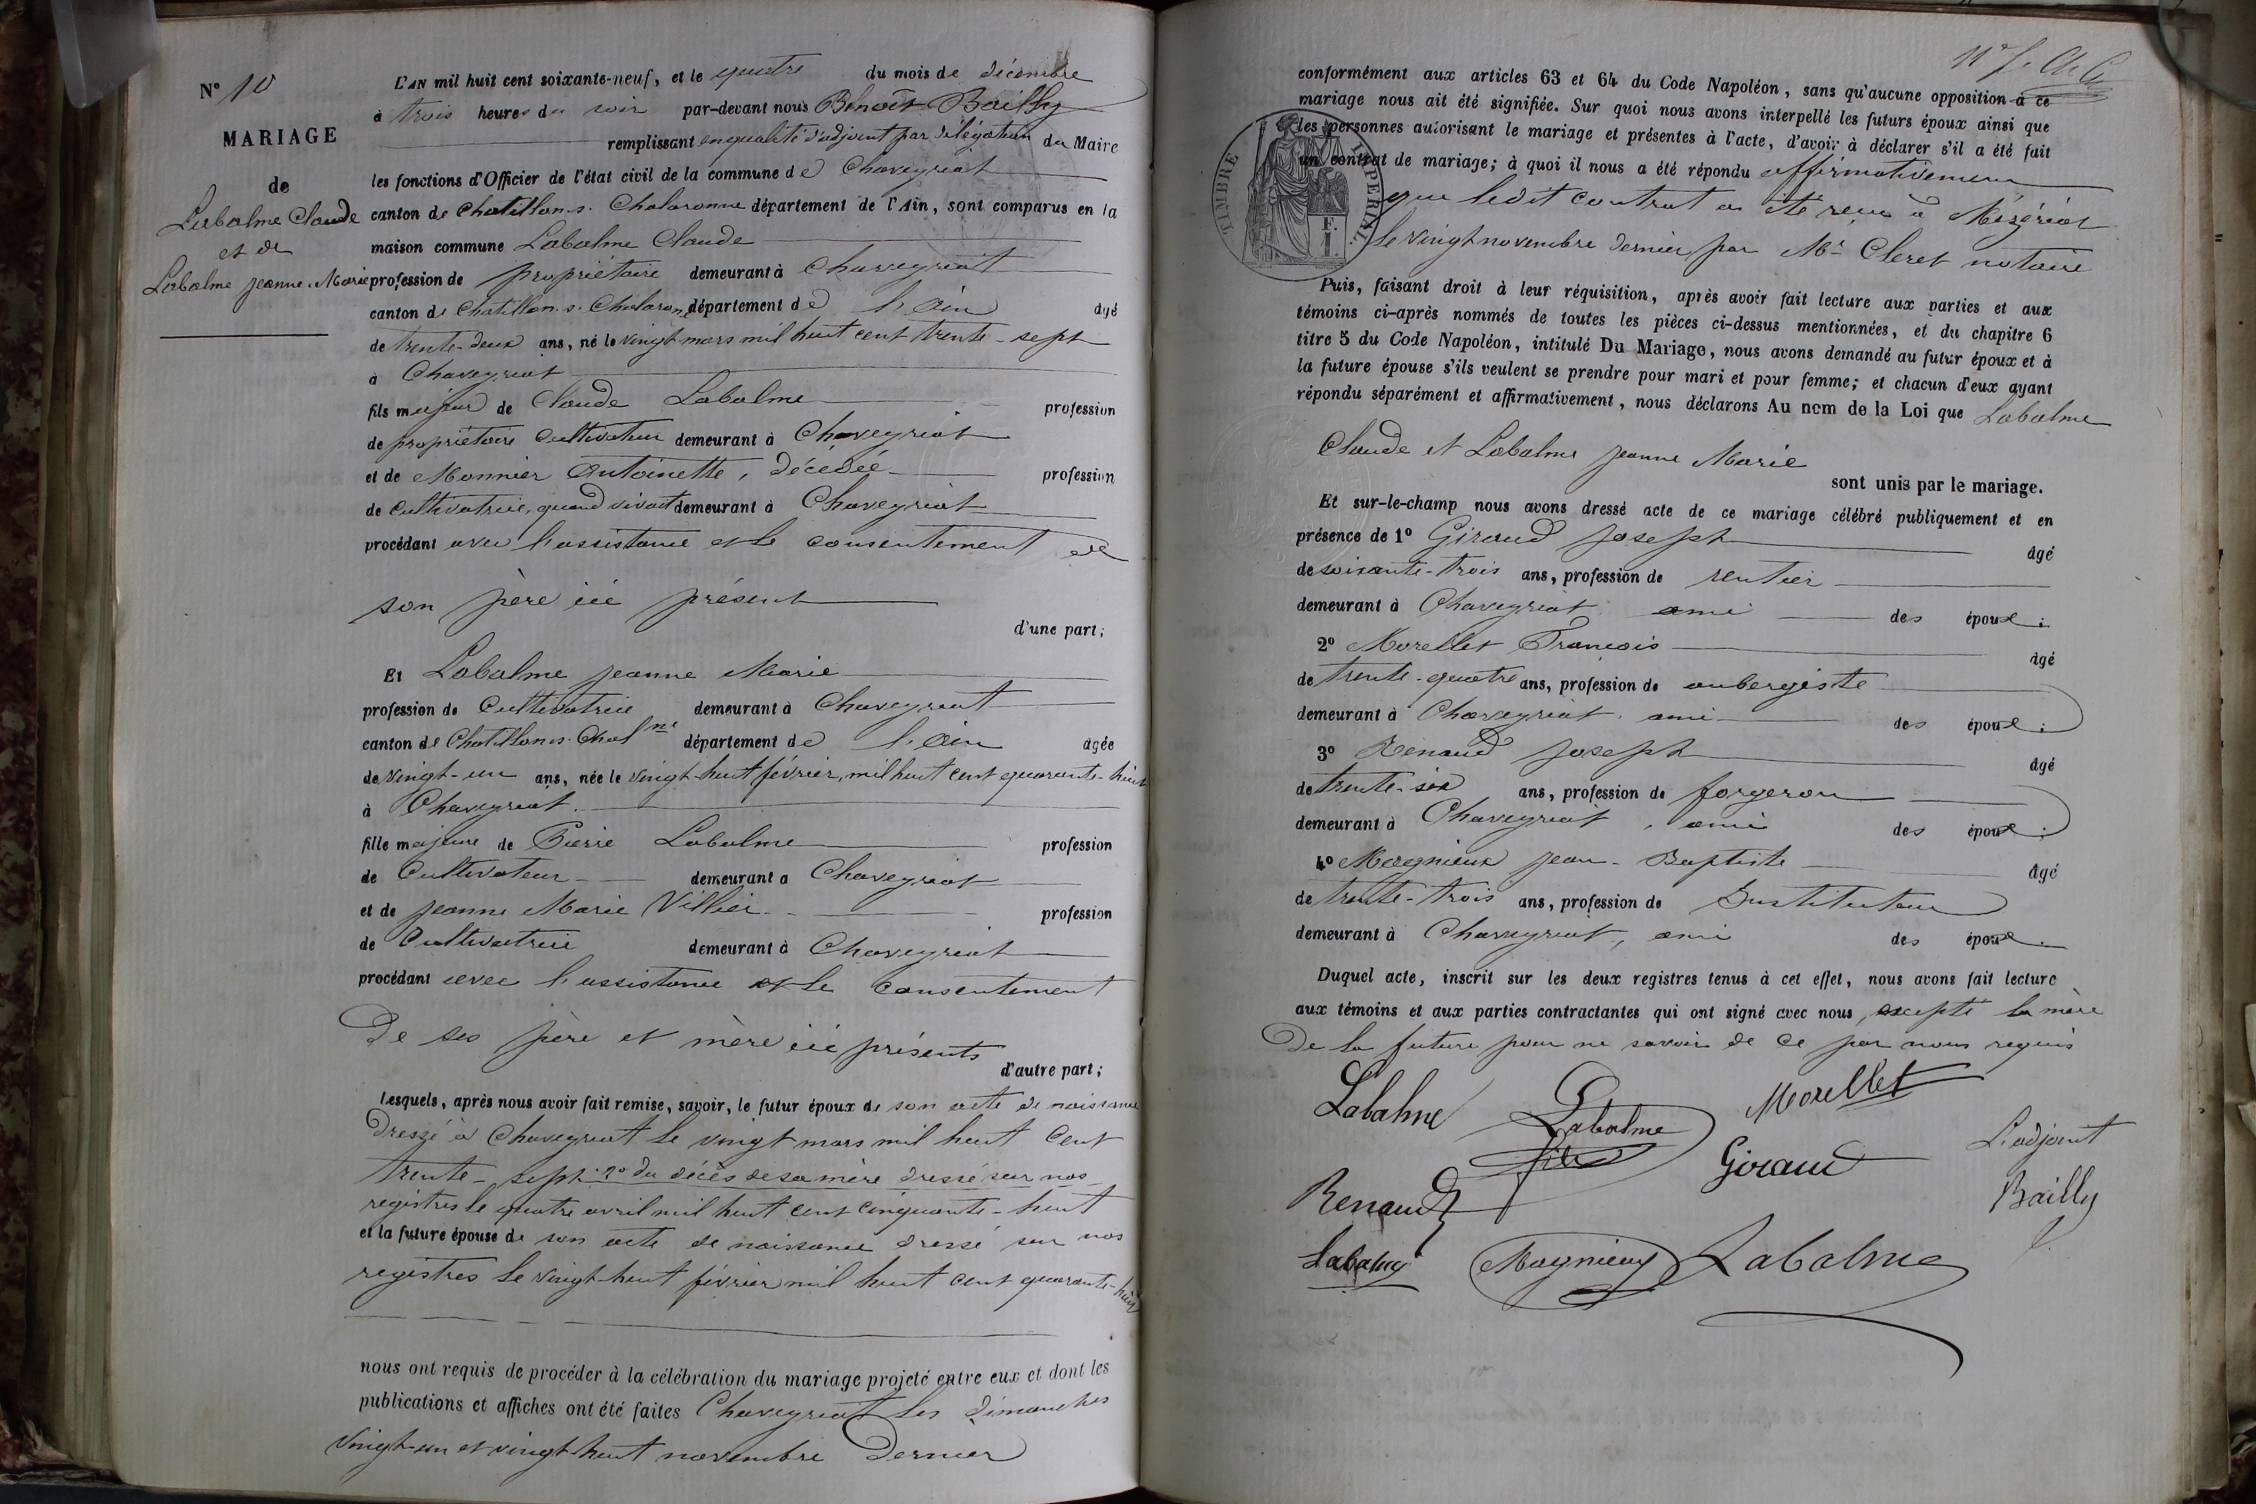 N° 10
MARIAGE
de
Labalme Claude
et de
Labalme Jeanne-Marie
L'AN mil huit cent soixante-neuf, et le quatre du mois de décembre
à trois heures du soir par-devant nous Benoît Bailly
remplissant en qualité d'adjoint par délégation du Maire
les fonctions d'Officier de l'état civil de la commune de Chaveyriat
canton de Chatillon-s-Chalaronne département de l'Ain, sont comparus en la
maison commune Labalme Claude
profession de propriétaire demeurant à Chaveyriat
canton de Chatillon-s-Chalaronne département de l'Ain âgé
de trente-deux ans, né le vingt mars mil huit cent trente-sept
à Chaveyriat
fils majeur de Claude Labalme profession
de propriétaire cultivateur demeurant à Chaveyriat
et de Monnier Antoinette, décédée profession
de cultivatrice, quand vivait demeurant à Chaveyriat
procédant avec l'assistance et le consentement de
son père ici présent
d'une part;
Et Labalme Jeanne Marie
profession de cultivatrice demeurant à Chaveyriat
canton de Chatillon-s-Chalne département de l'Ain agée
de vingt-un ans, née le vingt-huit février, mil huit cent quarante-huit
à Chaveyriat
fille majeure de Pierre Labalme profession
de cultivateur demeurant à Chaveyriat
et de Jeanne Marie Villier profession
de cultivatrice demeurant à Chaveyriat
procédant avec l'assistance et le consentement
de ses père et mère ici présents
d'autre part;
Lesquels, après nous avoir fait remise, savoir, le futur époux de son acte de naissance
dressé à Chaveyriat le vingt mars mil huit cent
trente-sept. 2° du décès de sa mère dressé sur nos
registres le quatre avril mil huit cent cinquante-huit
et la future épouse de son acte de naissance dressé sur nos
registres le vingt-huit février mil huit cent quarante-huit
nous ont requis de procéder à la célébration du mariage projeté entre eux et dont les
publications et affiches ont été faites Chaveyriat les dimanches
vingt-un et vingt-huit novembre dernier
conformément aux articles 63 et 64 du Code Napoléon, sans qu'aucune opposition à ce
mariage nous ait été signifiée. Sur quoi nous avons interpellé les futurs époux ainsi que
les personnes autorisant le mariage et présentes à l'acte, d'avoir à déclarer s'il a été fait
un contrat de mariage; à quoi il nous a été répondu affirmativement
que ledit contrat a été reçu à Mézériat
le vingt novembre dernier par Mr Cleret notaire
TIMBRE IMPERIAL
F. I.
Puis, faisant droit à leur réquisition, après avoir fait lecture aux parties et aux
témoins ci-après nommés de toutes les pièces ci-dessus mentionnées, et du chapitre 6
titre 5 du Code Napoléon, intitulé Du Mariage, nous avons demandé au futur époux et à
la future épouse s'ils veulent se prendre pour mari et pour femme; et chacun d'eux ayant
répondu séparément et affirmativement, nous déclarons Au nom de la Loi que Labalme
Claude et Labalme Jeanne Marie
sont unis par le mariage.
Et sur-le-champ nous avons dressé acte de ce mariage célébré publiquement et en
présence de 1° Giraud Joseph âgé
de soixante-trois ans, profession de rentier
demeurant à Chaveyriat ami des époux.
2° Morellet François âgé
de trente-quatre ans, profession de aubergiste
demeurant à Chaveyriat, ami des époux.
3° Renaud Joseph âgé
de trente-six ans, profession de forgeron
demeurant à Chaveyriat, ami des époux.
4° Magnieux Jean-Baptiste âgé
de trente-trois ans, profession de Instituteur
demeurant à Chaveyriat, ami des époux.
Duquel acte, inscrit sur les deux registres tenus à cet effet, nous avons fait lecture
aux témoins et aux parties contractantes qui ont signé avec nous, excepté la mère
de la future pour ne savoir de ce par nous requis
Labalme Labalme fils Morellet
Giraud L'adjoint
Renaud Bailly
Labalme Magnieux Labalme